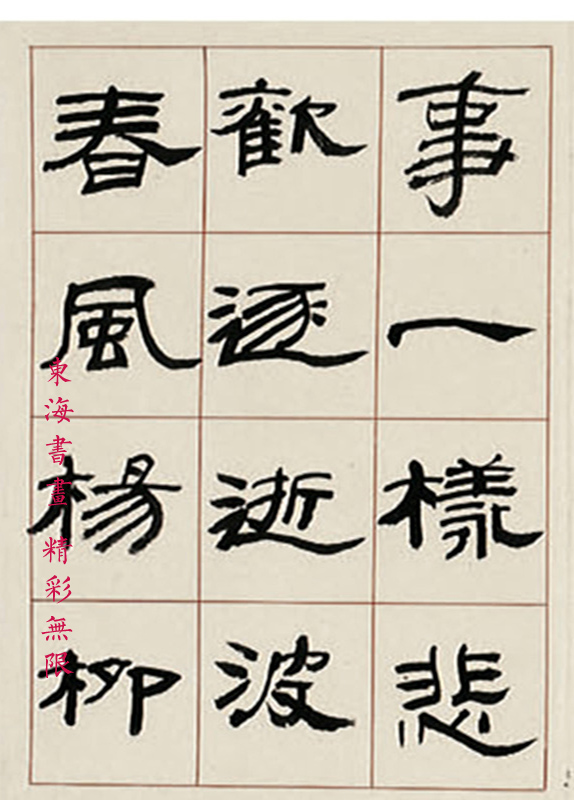 事一樣悲
歡逐逝波
春風楊柳
東海書畫 精彩無限